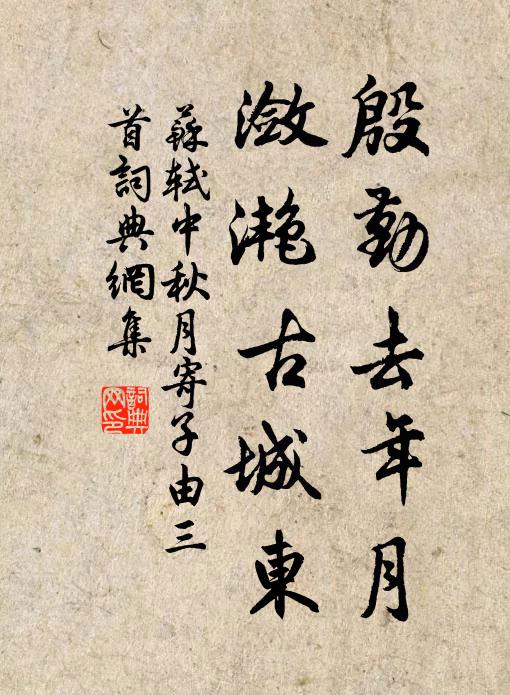 殷勤去年月
瀲灩古城東
蘇軾中秋月寄子由三
首詞典網集
詞典
网印